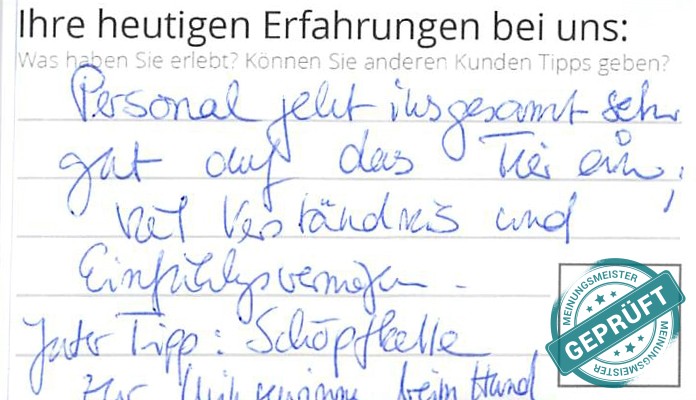 Ihre heutigen Erfahrungen bei uns:
Was haben Sie erlebt? Können Sie anderen Kunden Tipps geben?
Personal geht insgesamt sehr
gut auf das Tier ein;
hat Verständnis und
Einfühlungsvermögen.
Guter Tipp: Schöpfkelle
zur beim Hund
MEINUNGSMEISTER
GEPRÜFT
MEINUNGSMEISTER